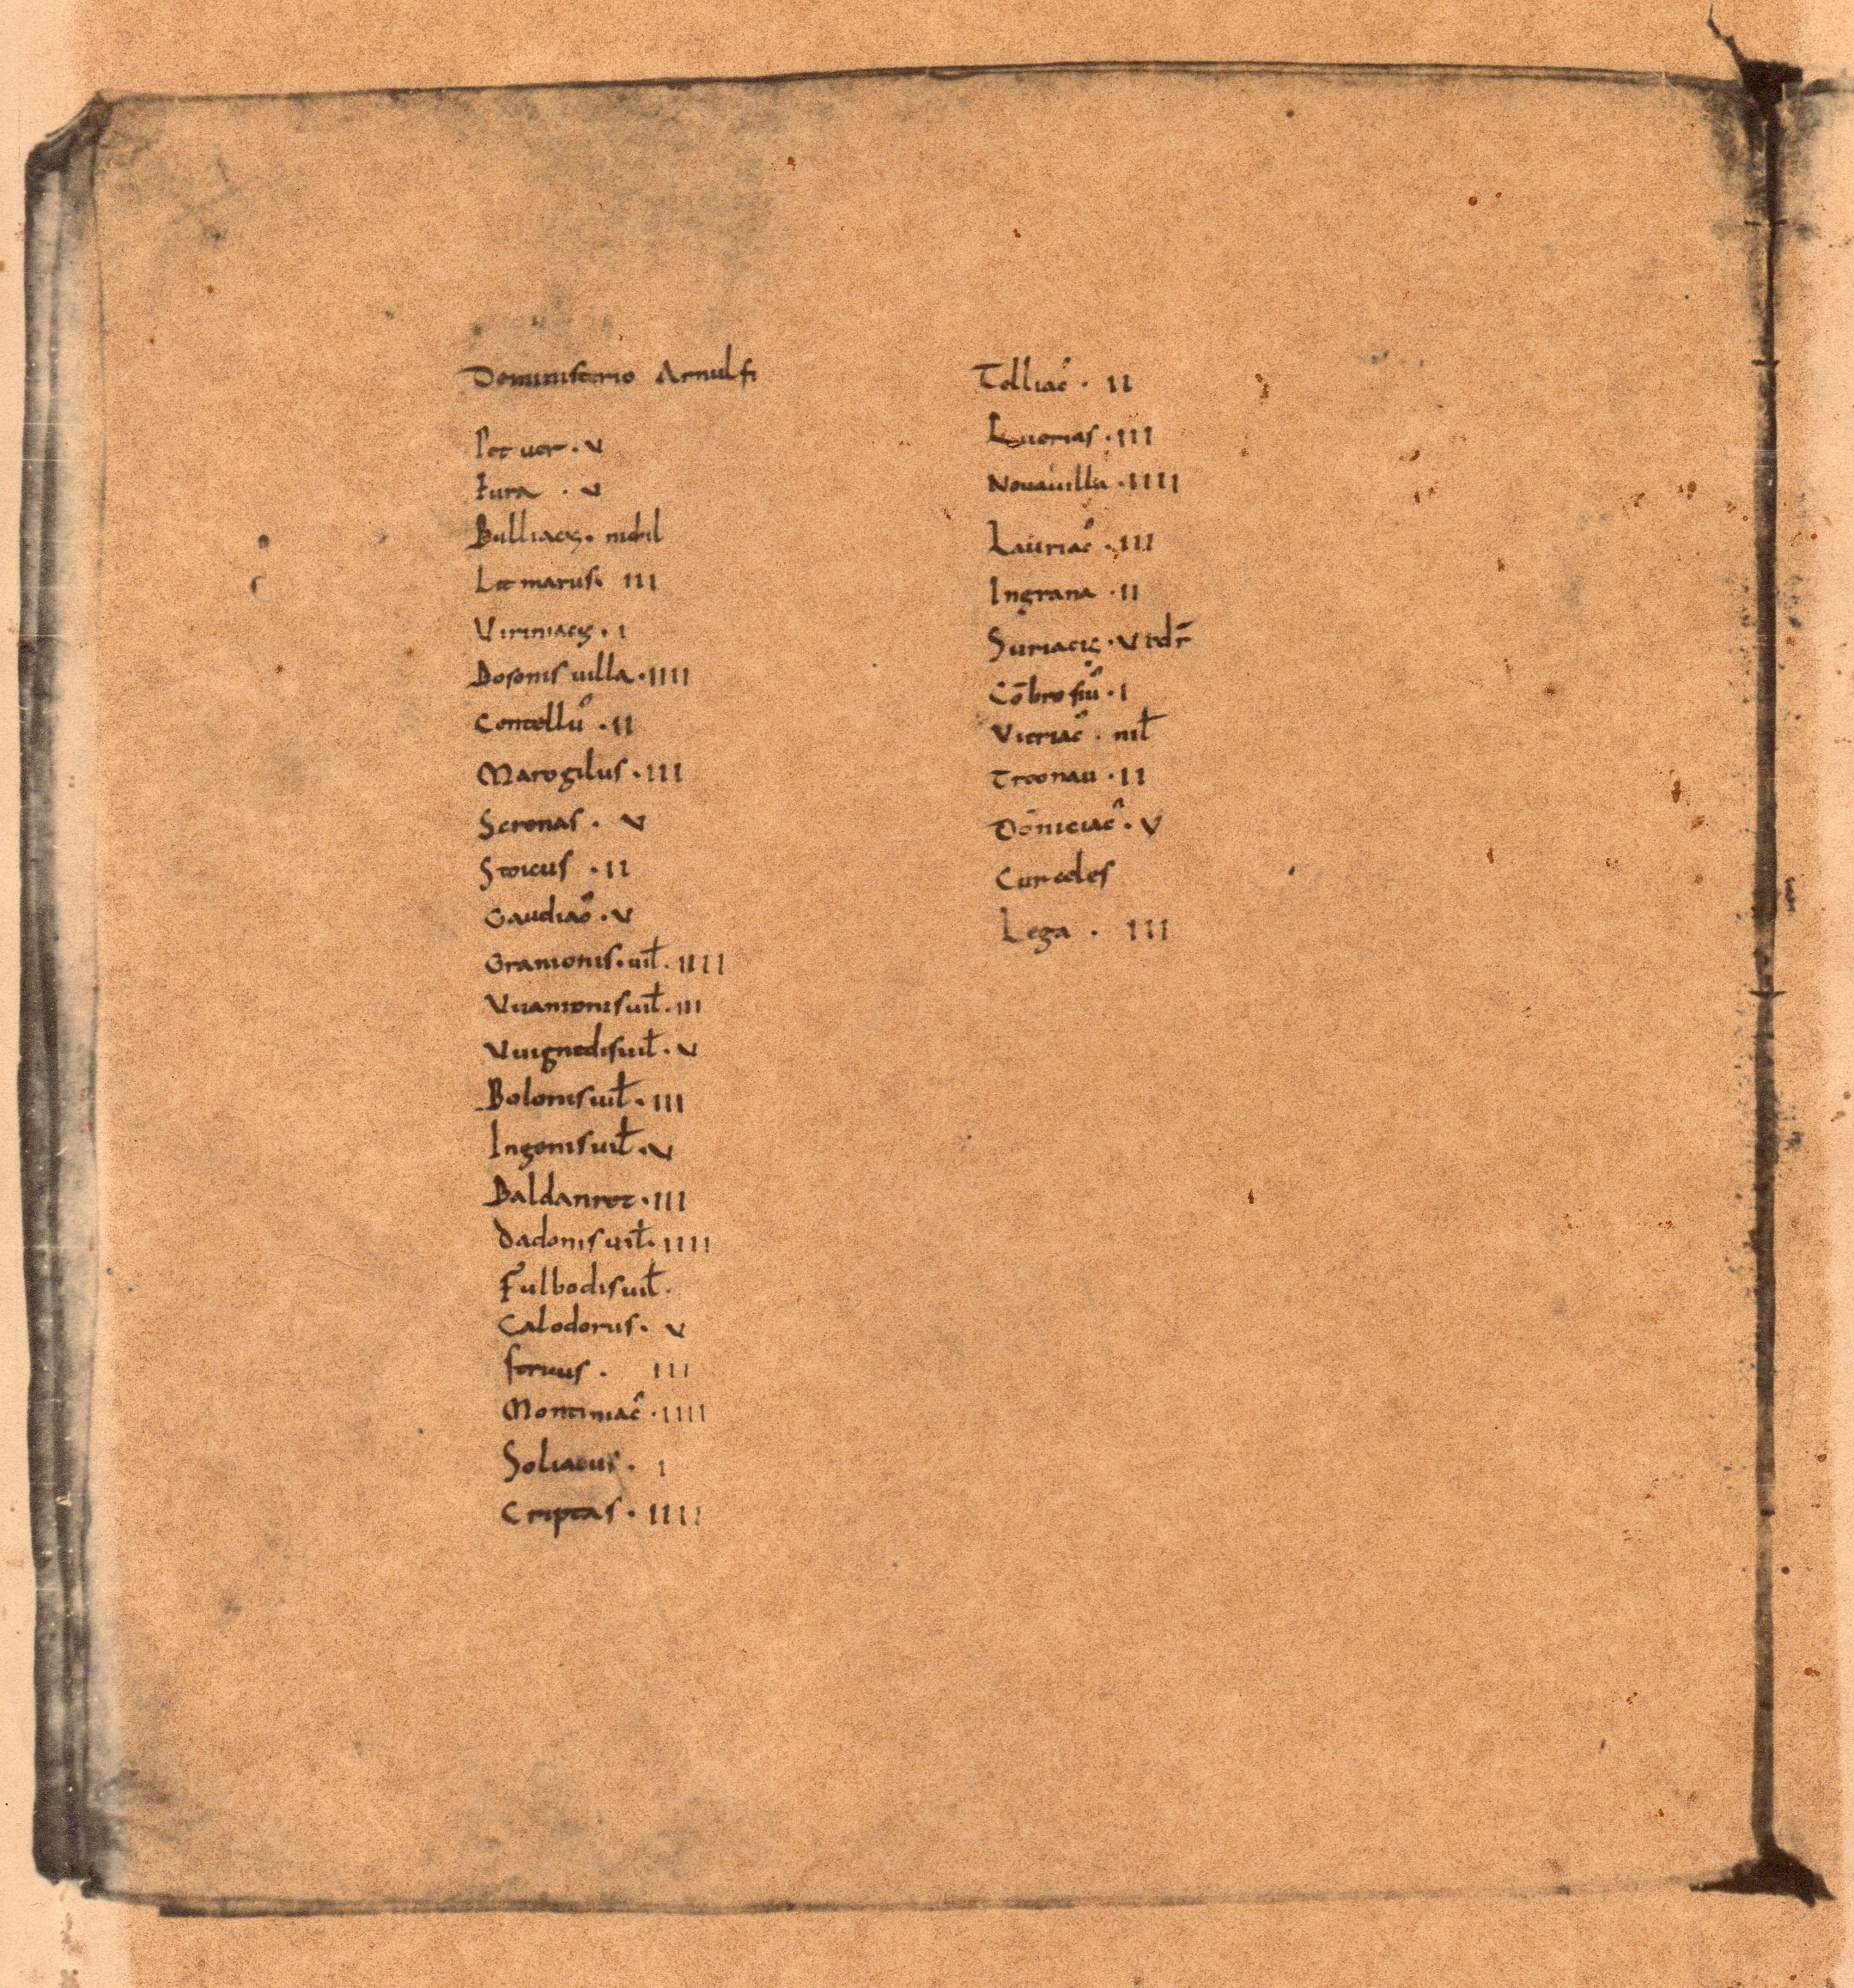 Deministerio Arnulfi
Petuer · v
Iura · v
Bulliacus · nihil
Letmarus · III
Viriniacus · I
Bosonis uilla · IIII
Centellũ · II
Marogilus · III
Serenas · v
Stoicus · II
Gaudiac̃ · v
Gramonis · uił · IIII
Vuamonisuił · III
Vuignedisuił · v
Bolonisuił · III
Ingenisuił · v
Baldanret · III
Dadonisuił · IIII
Fulbodisuił ·
Calodorus · v
seruus · III
Montiniac̃ · IIII
Soliacus · I
Criptas · IIII
Telliac̃ · II
Luerias · III
Nouauilla · IIII
Lauriac̃ · III
Ingrana · II
Suriacus · v
Cõbrosiũ · I
Vitriac̃ · nił
Treonau · II
Domiciac̃ · V
Curceles
Lega · III